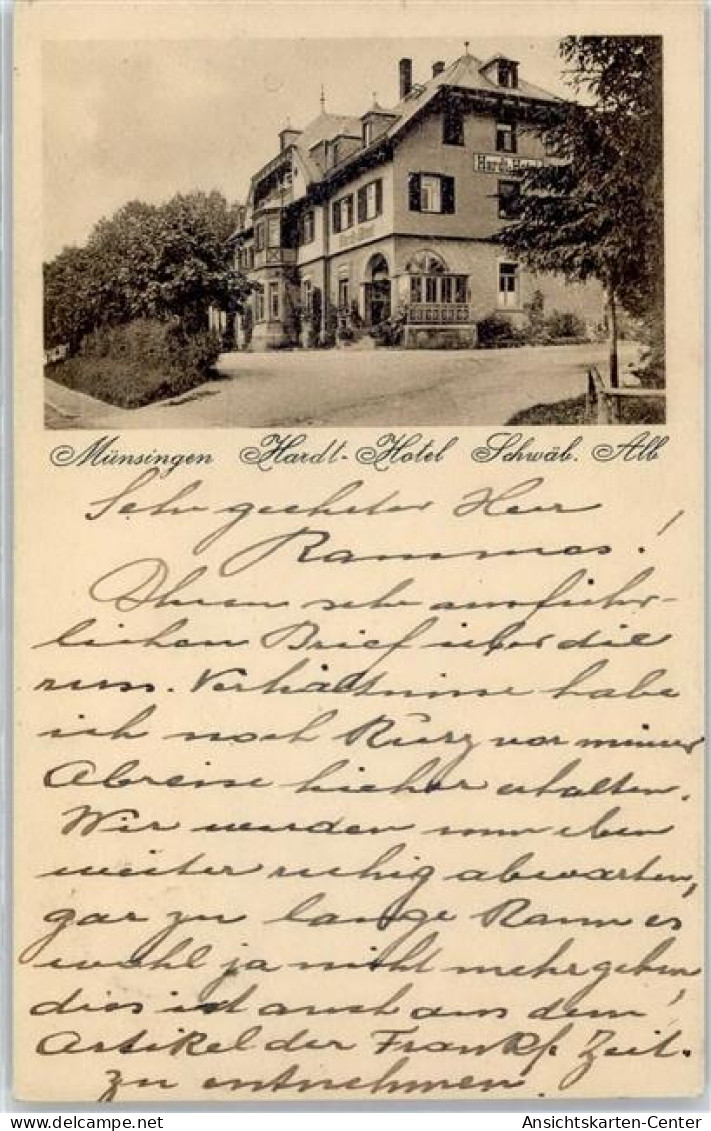 Hardt-Hotel
Münsingen Hardt-Hotel Schwäb. Alb
Sehr geehrter Herr
Rammes!
Ihren sehr ausführ-
lichen Brief über die
russ. Verhältnisse habe
ich noch Kurz vor meiner
Abreise hieher erhalten.
Wir werden nun eben
weiter ruhig abwarten,
gar zu lange Kann es
wohl ja nicht mehr gehen,
dies ist auch aus dem
Artikel der Frankf. Zeit.
zu entnehmen.
Ansichtskarten-Center